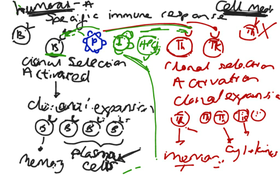 Humoral - A
Cell med
Specific immune response
B
B
P
I
APC
TH
TK
TK
clonal selection
Activated
clonal selection
Activation
clonal expansion
clonal expansion
B B B B
memory
plasma
cells
memory
cytokines